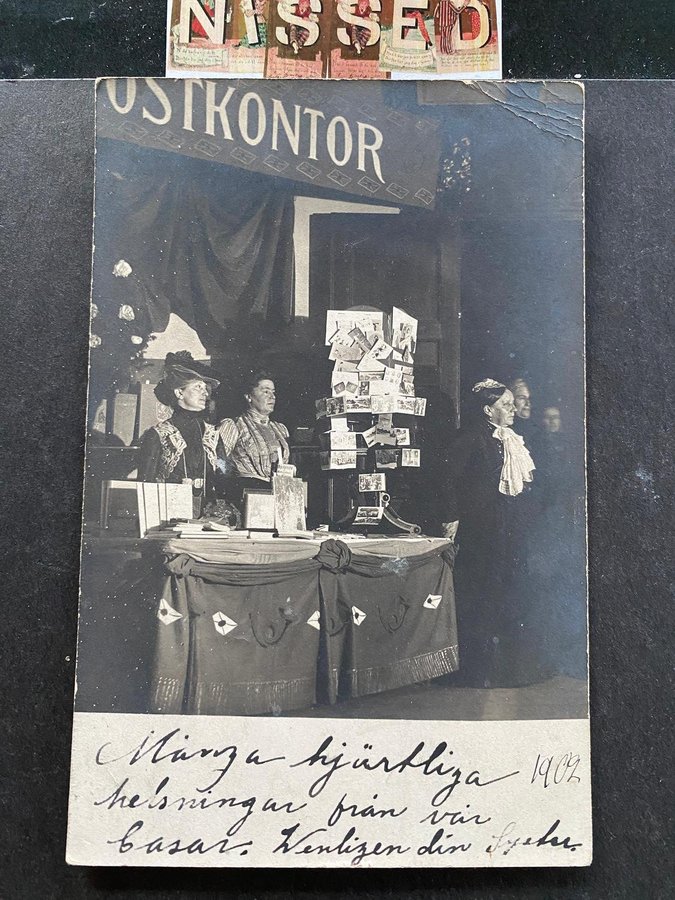 NISSED
OSTKONTOR
Många hjärtliga 1902
helsningar från vår
basar. Wenligen din Syster.